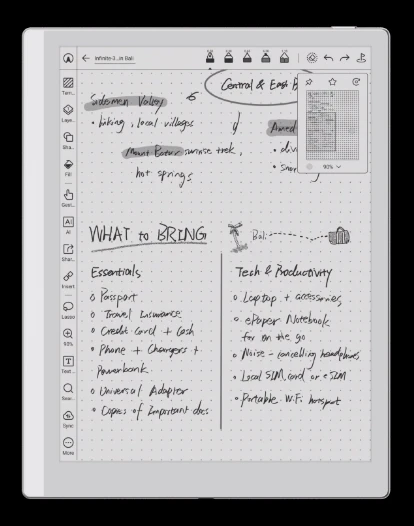 Infinite-3...in Bali
Tem...
Laye...
Sha...
Fill
Gest...
AI
AI
Shar...
Insert
Lasso
90%
Text ...
Sear...
Sync
More
90%
Central & East B
Sidemen Valley
• hiking, local villages
Amed
Mount Batur sunrise trek,
• div
hot springs
• snor
WHAT to BRING
Bali
Essentials
• Passport
• Travel Insurance
• Credit Card + Cash
• Phone + Chargers +
Powerbank
• Universal Adapter
• Copies of Important docs
Tech & Productivity
• Laptop + accessories
• ePaper Notebook
for on the go
• Noise-cancelling headphones
• Local SIM card or eSIM
• Portable Wi-Fi hotspot